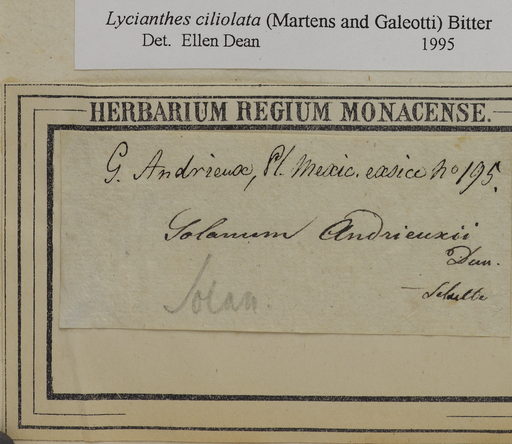 Lycianthes ciliolata (Martens and Galeotti) Bitter
Det. Ellen Dean 1995
HERBARIUM REGIUM MONACENSE.
G. Andrieux, Pl. Mexic. exsicc No 195.
Solanum Andrieuxii
Dun.
Solan.